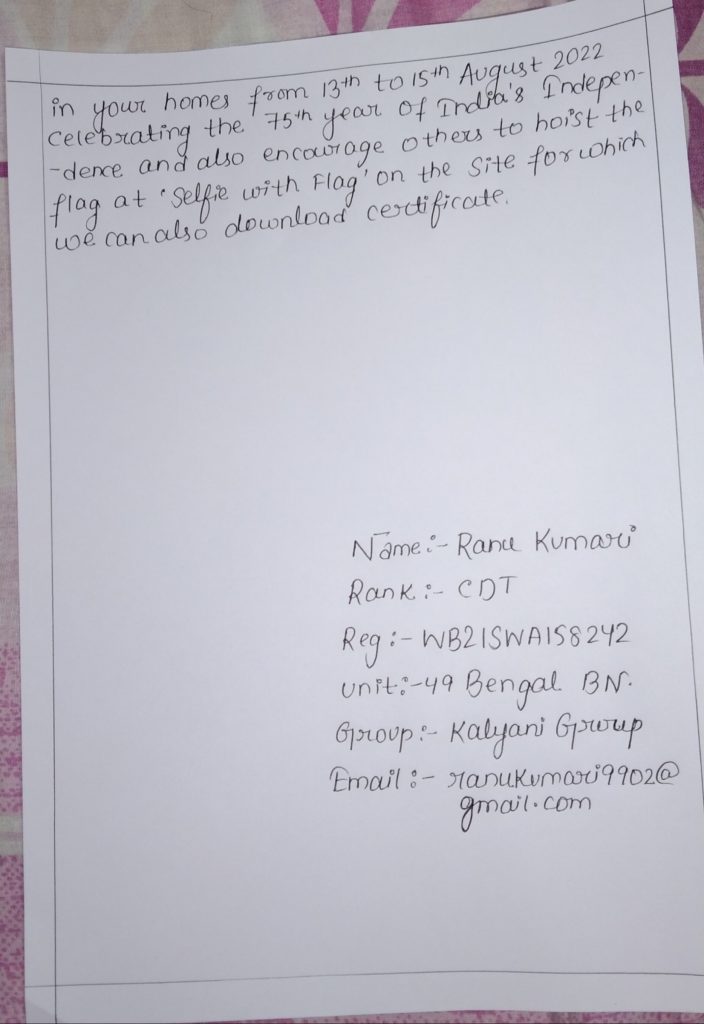 in your homes from 13th to 15th August 2022
Celebrating the 75th year of India's Indepen-
-dence and also encourage others to hoist the
flag at 'Selfie with Flag' on the site for which
we can also download certificate.
Name:- Ranu Kumari
Rank:- CDT
Reg:- WB21SWA158242
Unit:-49 Bengal BN.
Group:- Kalyani Group
Email:- ranukumari9902@
gmail.com